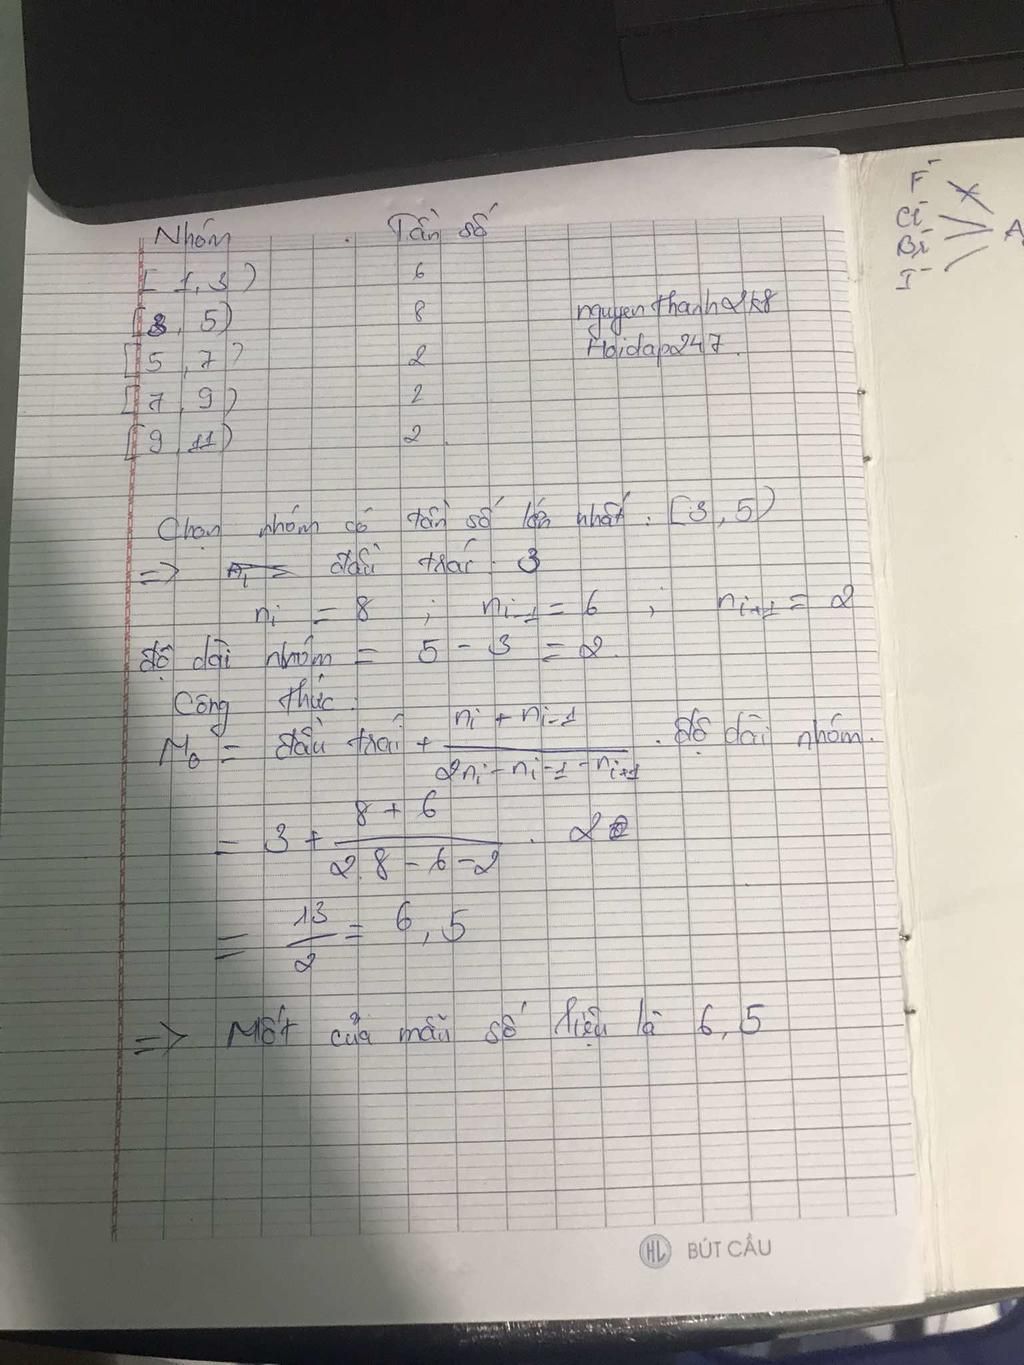 Nhóm . Tần số
[ 1, 3 ) 6
[3, 5) 8 nguyenthanh2k8
[5, 7) 2 Hoidap247.
[7, 9) 2
[9, 11) 2.
Chọn nhóm có tần số lớn nhất. [3, 5)
=> đầu trái. 3
ni = 8 ; ni-1 = 6 ; ni+1 = 2
độ dài nhóm = 5 - 3 = 2.
Công thức:
Mo = đầu trái + (ni + ni-1)/(2ni - ni-1 - ni+1) . độ dài nhóm.
= 3 + (8 + 6)/(2.8 - 6 - 2) . 2
= 13/2 = 6,5
=> Mốt của mẫu số liệu là 6,5
F-
Cl-
Br-
I-
A
HL BÚT CẦU